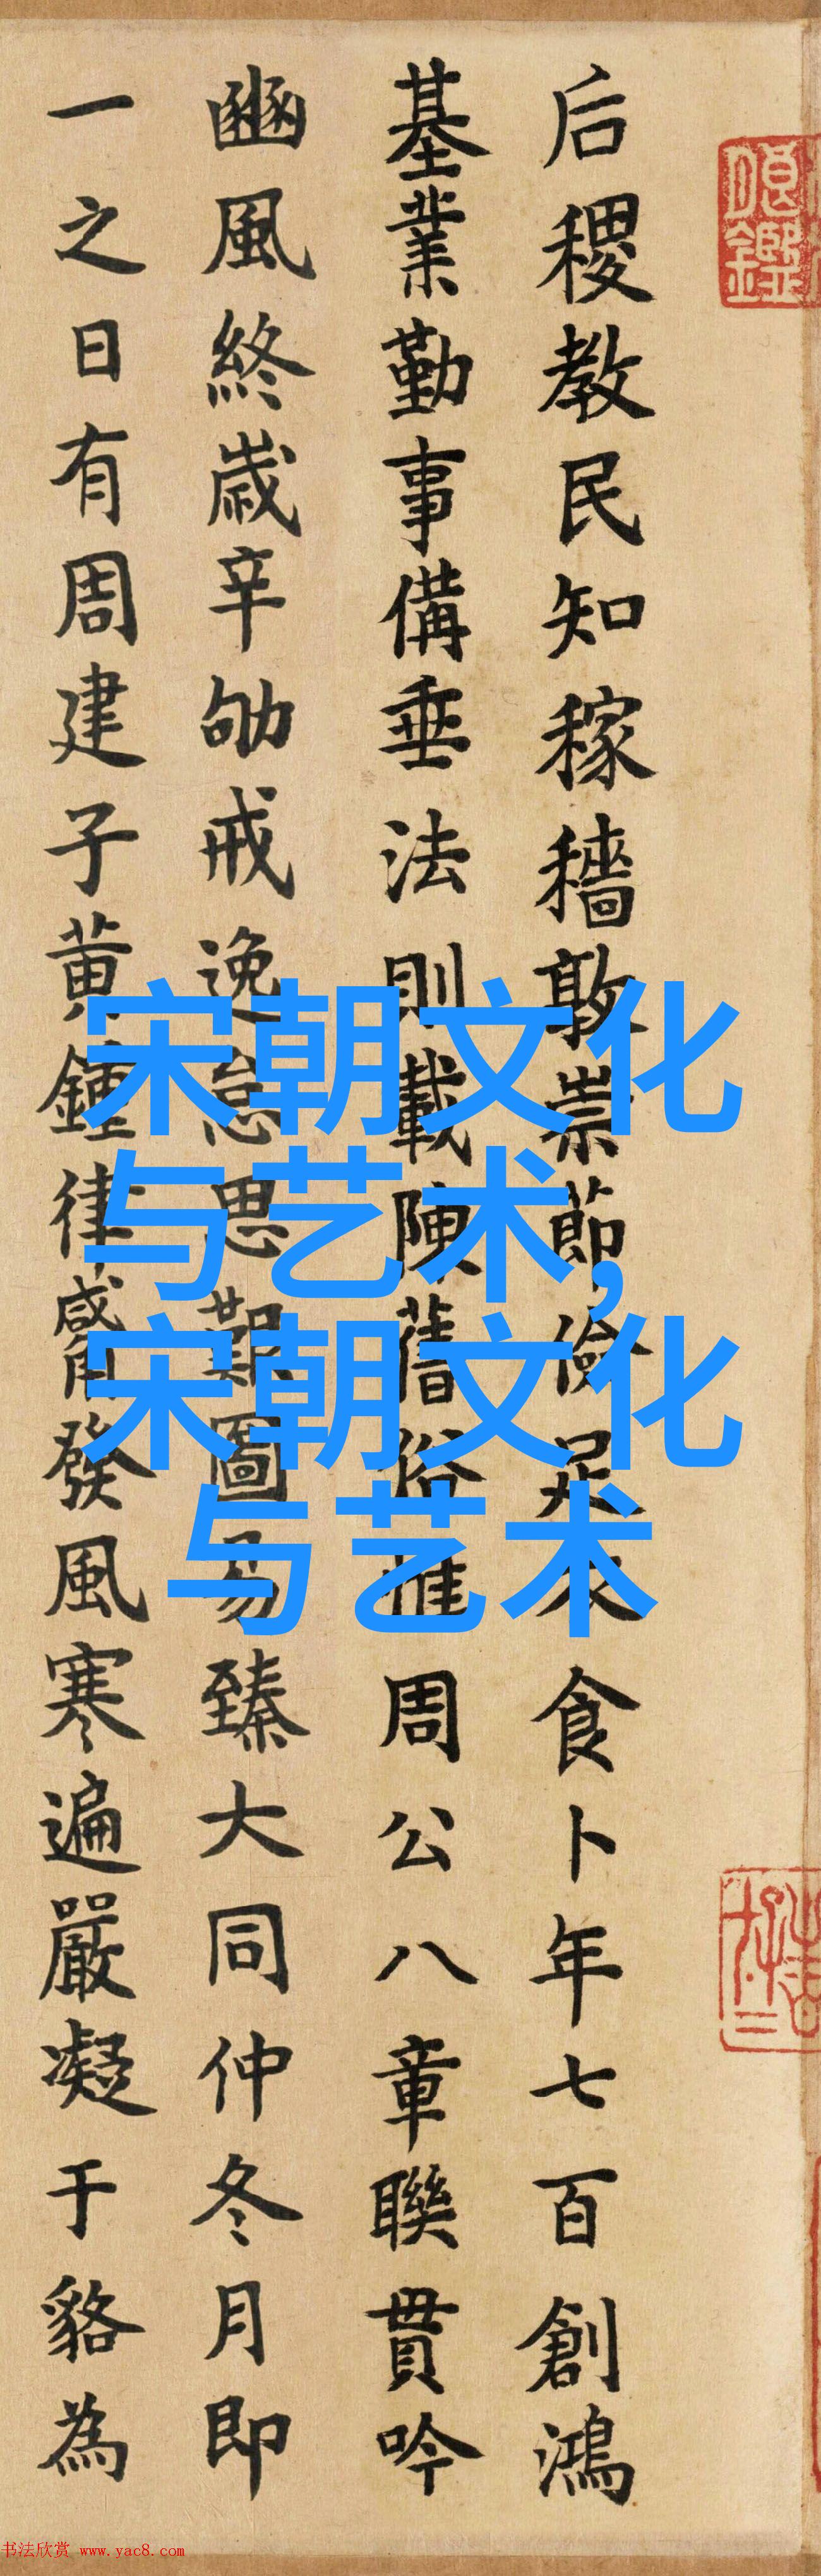 后稷教民知稼穡敦崇節儉足衣食卜年七百創鴻
基業勤事備垂法則載陳舊俗惟周公八章聯貫吟
豳風終歲辛劬戒逸怠思艱圖易臻大同仲冬月即
一之日有周建子黃鍾律觱發風寒遍嚴凝于貉為
宋朝文化
与艺术,
宋朝文化
与艺术
书法欣赏 www.yac8.com